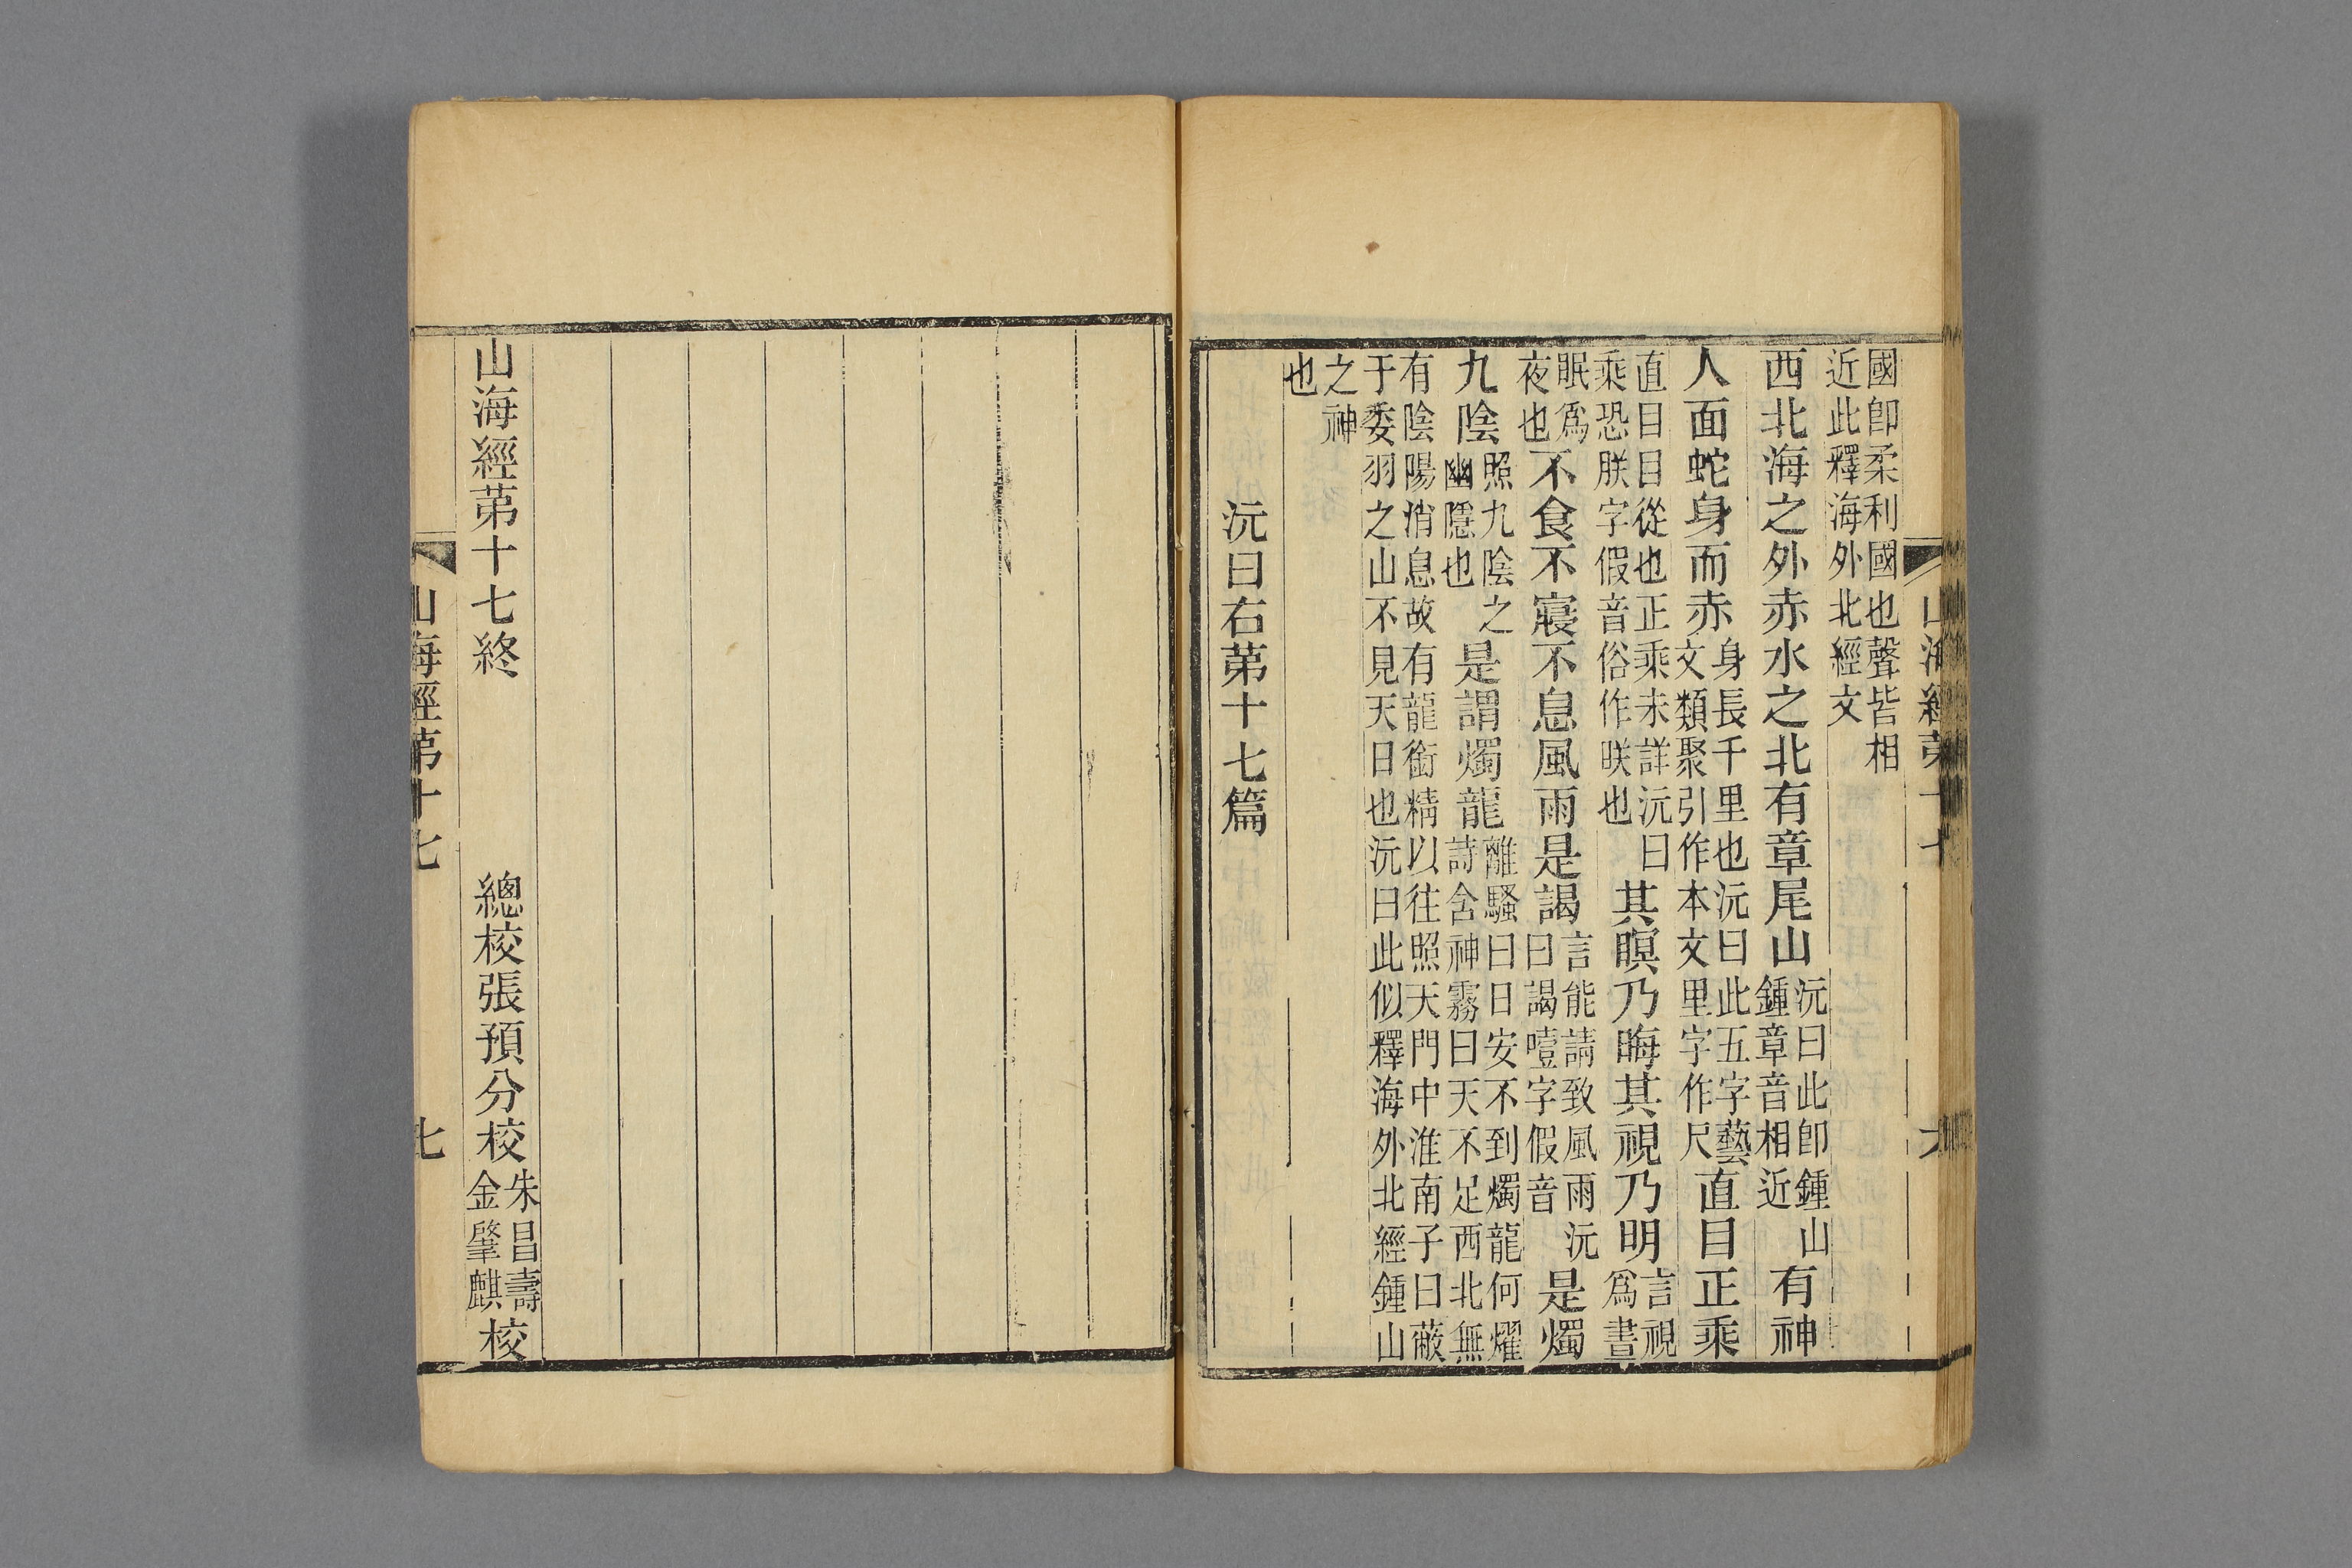 山海經苐十七 六
國卽柔利國也聲皆相近此釋海外北經文
西北海之外赤水之北有章尾山沅曰此卽鍾山鍾章音相近有神
人面蛇身而赤身長千里也沅曰此五字藝文類聚引作本文里字作尺直目正乘
直目目從也正乘未詳沅曰乘恐朕字假音俗作眹也其瞑乃晦其視乃明言視爲晝
眠爲夜也不食不寢不息風雨是謁言能請致風雨沅曰謁噎字假音是燭
九陰照九陰之幽隱也是謂燭龍離騷曰日安不到燭龍何燿詩含神霧曰天不足西北無
有陰陽消息故有龍銜精以往照天門中淮南子曰蔽于委羽之山不見天日也沅曰此似釋海外北經鍾山
之神也
沅曰右苐十七篇
山海經苐十七終 總校張預分校朱昌壽金肇麒校
山海經苐十七 七